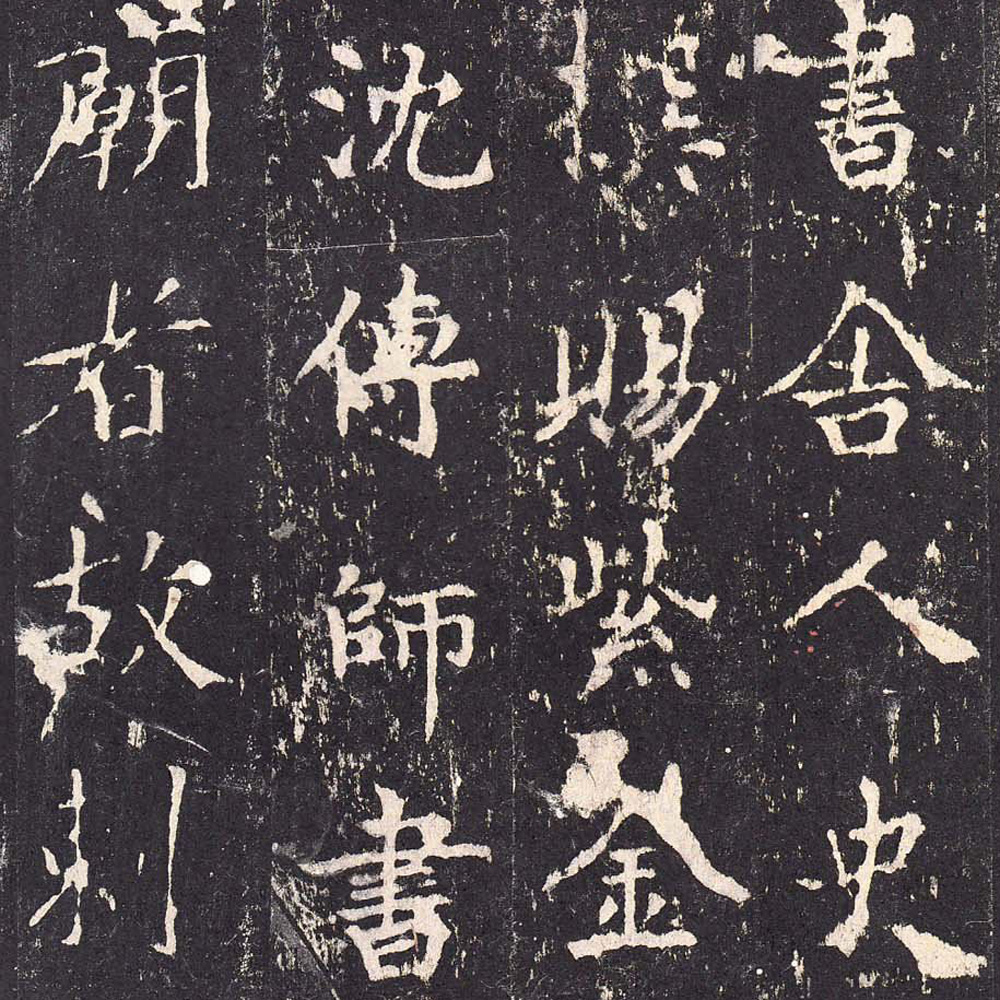 書舍人史
撰賜紫金
沈傳師書
廟者故刺